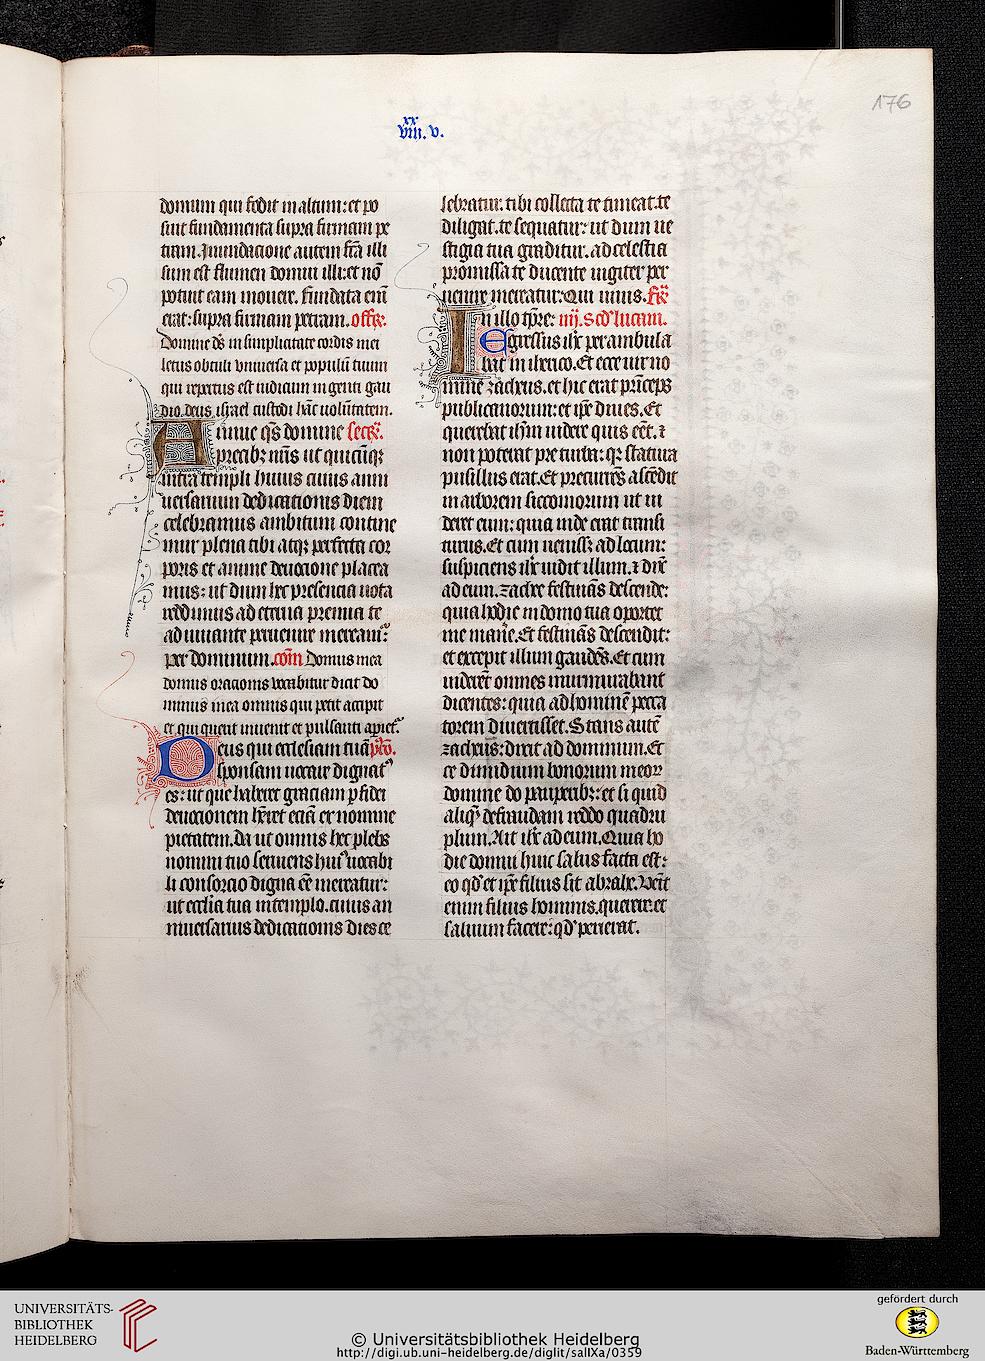 176
xx
viii. v.
domum qui fodit in altum: et po
suit fundamenta supra firmam pe
tram. Inundacione autem fc̄a illi
sum est flumen domui illi: et nō
potuit eam mouere. fundata enī
erat: supra firmam petram. offr̄.
Domine ds̄ in simplicitate cordis mei
letus obtuli vniuersa et populū tuum
qui repertus est uidi cum ingenti gau
dio. deus israel custodi hāc uolūtatem.
Annue qs̄ domine secr̄.
precibꝫ nr̄is ut quicūqꝫ
intra templi huius cuius anni
uersarium dedicationis diem
celebramus ambitum contine
mur plena tibi atqꝫ perfecta cor
poris et anime deuocione placea
mus: ut dum hec presencia uota
reddimus ad eterna premia te
adiuuante peruenire mereamᷣ:
per dominum. com̄ Domus mea
domus orationis vocabitur dicit do
minus in ea omnis qui petit accipit
et qui querit inuenit et pulsanti apietᷣ.
Deus qui ecclesiam tuā p̄co.
sponsam uocare dignatꝰ
es: ut que haberet graciam ꝑ fidei
deuocionem hr̄et eciā ex nomine
pietatem. Da ut omnis hec plebs
nomini tuo seruiens huiꝰ uocabu
li consorcio digna eē mereatur:
ut eccl̄ia tua in templo. cuius an
niuersarius dedicationis dies ce
lebratur. tibi collecta te timeat. te
diligat. te sequatur: ut dum ue
stigia tua graditur. ad celestia
promissa te ducente iugiter per
uenire mereatur: Qui uiuis.
In illo tp̄re: scd' lucam.
Egressus ih̄c perambula
bat in iherico. Et ecce uir no
mine zacheus. et hic erat pr̄iceps
publicanorum: et ip̄e diues. Et
querebat ih̄m uidere quis eēt. ⁊
non poterat pre turba: qꝛ statura
pusillus erat. Et precurrēs ascēdit
in arborem siccomorum ut ui
deret eum: quia inde erat transi
turus. Et cum uenissꝫ ad locum:
suspiciens ih̄c uidit illum. ⁊ dix̄
ad eum. zachee festināns descende:
quia hodie in domo tua oportet
me man̄e. Et festināns descendit:
et excepit illum gaudēs. Et cum
uiderēt omnes murmurabant
dicentes: quia ad hominē pecca
torem diuertisset. Stans autē
zacheus: dixit ad dominum. Et
ce dimidium bonorum meoꝝ
domine do pauperibꝫ: et si quid
aliqꝫ defraudam reddo quadru
plum. Ait ih̄c ad eum. Quia ho
die domui huic salus facta est:
eo qd' et ip̄e filius sit abrahe. Veīt
enim filius hominis. querere. et
saluum facere: qd' perierat.
UNIVERSITÄTS-
BIBLIOTHEK
HEIDELBERG
© Universitätsbibliothek Heidelberg
http://digi.ub.uni-heidelberg.de/diglit/salIXa/0359
gefördert durch
Baden-Württemberg